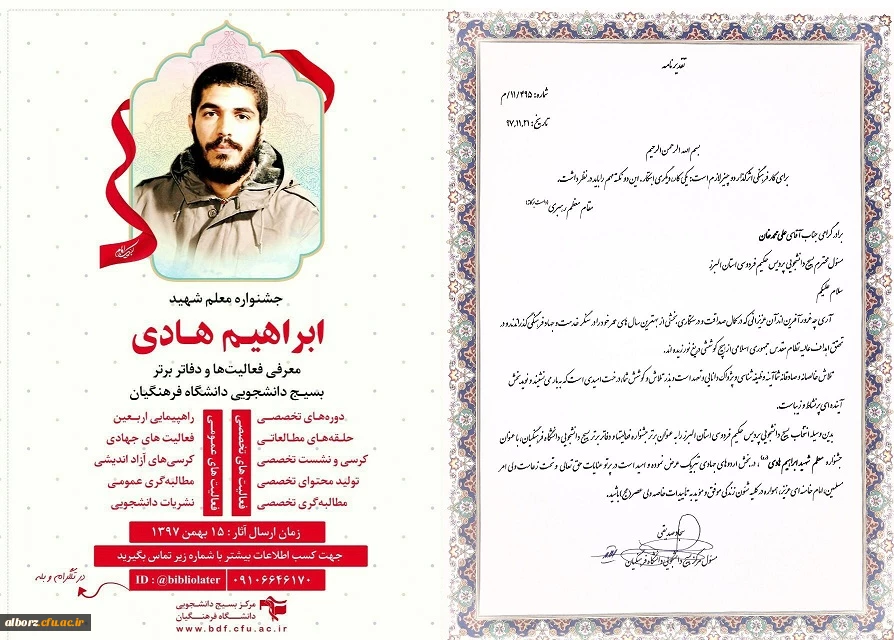 جشنواره معلم شهید
ابراهیم هادی
معرفی فعالیت‌ها و دفاتر برتر
بسیج دانشجویی دانشگاه فرهنگیان
فعالیت های تخصصی
دوره‌های تخصصی
حلقه‌های مطالعاتی
کرسی و نشست تخصصی
تولید محتوای تخصصی
مطالبه‌گری تخصصی
فعالیت های عمومی
راهپیمایی اربعین
فعالیت های جهادی
کرسی‌های آزاد اندیشی
مطالبه‌گری عمومی
نشریات دانشجویی
زمان ارسال آثار : ۱۵ بهمن ۱۳۹۷
جهت کسب اطلاعات بیشتر با شماره زیر تماس بگیرید
۰۹۱۰۶۶۴۶۱۷۰
ID : @bibliolater
در تلگرام و بله
مرکز بسیج دانشجویی
دانشگاه فرهنگیان
www.bdf.cfu.ac.ir
alborz.cfu.ac.ir
تقدیرنامه
شماره: ۱۱/۴۹۵/م
تاریخ: ۹۷.۱۱.۲۱
بسم الله الرحمن الرحیم
برای کار فرهنگی اثرگذار دو چیز لازم است: یکی کار، دیگری ابتکار. این دو نکته مهم را باید در نظر داشت.
مقام معظم رهبری
برادر گرامی جناب آقای علی محمدخان
مسئول محترم بسیج دانشجویی پردیس حکیم فردوسی استان البرز
سلام علیکم
آری چه غرورآفرین اند آن عزیزانی که در کمال صداقت و درستکاری، بخشی از بهترین سال های عمر خود را در سنگر خدمت و جهاد فرهنگی گذرانند و در
تحقق اهداف عالیه نظام مقدس جمهوری اسلامی از هیچ کوششی دریغ نورزیده اند.
تلاش خالصانه و صادقانه شما آینه وظیفه شناسی و پژواک دانایی و تعهد است و بذر تلاش و کوشش شما، درخت امیدی است که به بار می نشیند و نوید بخش
آینده ای پرنشاط و زیباست.
بدین وسیله انتخاب بسیج دانشجویی پردیس حکیم فردوسی استان البرز را به عنوان برتر جشنواره فعالیتها و دفاتر برتر بسیج دانشجویی دانشگاه فرهنگیان، با عنوان
جشنواره معلم شهید ابراهیم هادی، در بخش اردوهای جهادی تبریک عرض نموده و امید است در پرتو عنایات حق تعالی و تحت زعامت ولی امر
مسلمین، امام خامنه ای عزیز، همواره در کلیه شئون زندگی موفق و مؤید به تأییدات خاصه ولی عصر(عج) باشید.
سجاد صدیقی
مسئول مرکز بسیج دانشجویی دانشگاه فرهنگیان